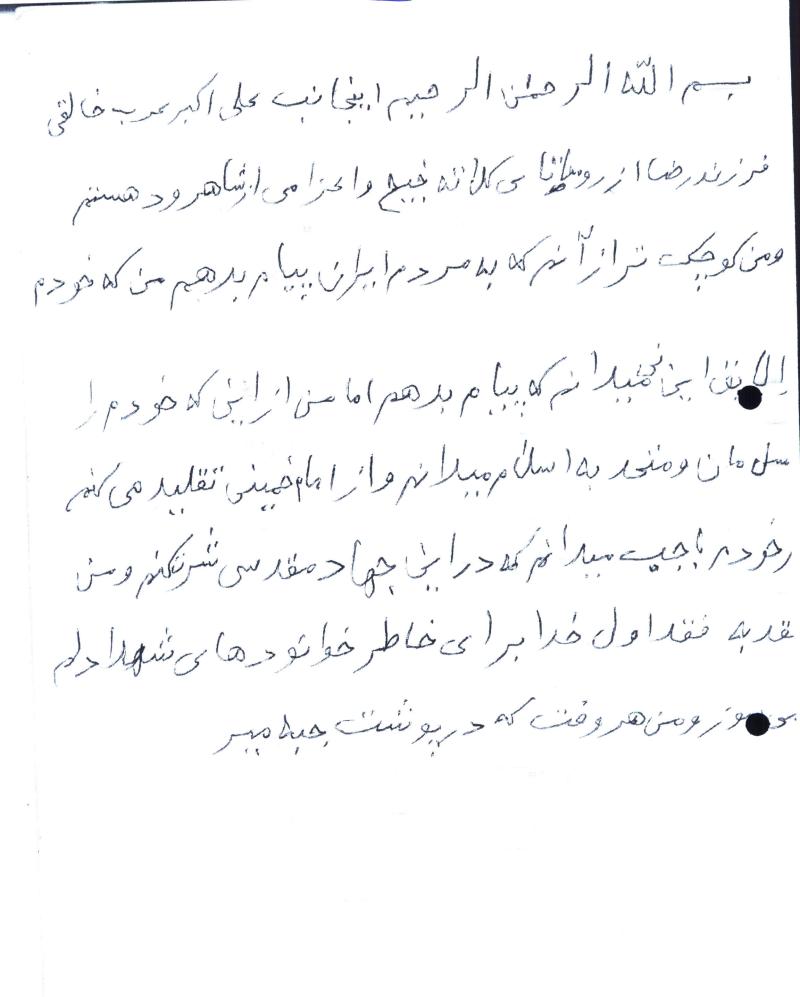 بسم الله الرحمن الرحیم اینجانب علی اکبر عرب خالقی
فرزند رضا از روستای کلاته خیج و اعزامی از شاهرود هستم
ومن کوچک تر از آنم که به مردم ایران پیام بدهم من که خودم
لایق این نمیدانم که پیام بدهم اما من از اینی که خودم را
سلمان و متحد به اسلام میدانم و از امام خمینی تقلید می کنم
خودم باجیب میدانم که در این جهاد مقدس شرتکنم ومن
به فقد اول خدا برای خاطر خوانودهای شهدا دلم
ومن هر وقت که در پوشت جبه میر